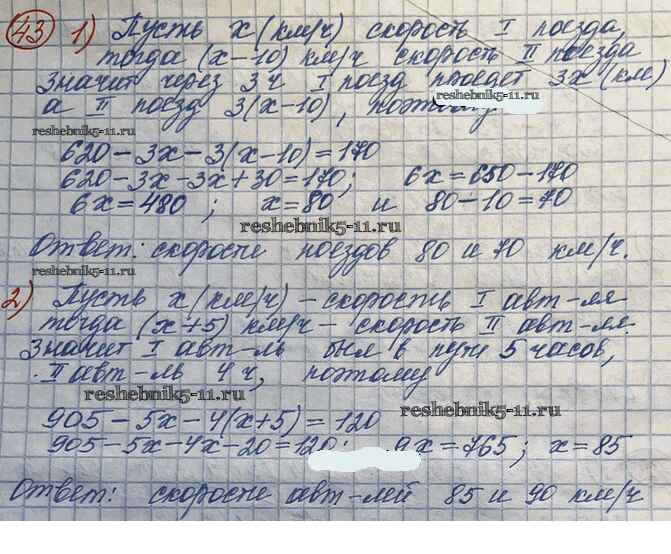 43 1) Пусть x (км/ч) скорость I поезда,
тогда (x-10) км/ч скорость II поезда
Значит через 3ч I поезд проедет 3x (км)
reshebnik5-11.ru
а II поезд 3(x-10), поэтому
reshebnik5-11.ru
620-3x-3(x-10)=170
620-3x-3x+30=170; 6x=650-170
6x=480; x=80 и 80-10=70
reshebnik5-11.ru
Ответ: скорости поездов 80 и 70 км/ч.
reshebnik5-11.ru
2) Пусть x (км/ч) - скорость I авт-ля
тогда (x+5) км/ч - скорость II авт-ля.
Значит I авт-ль был в пути 5 часов,
II авт-ль 4ч, поэтому
reshebnik5-11.ru
905-5x-4(x+5)=120
reshebnik5-11.ru
905-5x-4x-20=120; 9x=765; x=85
Ответ: скорости авт-лей 85 и 90 км/ч
reshebnik5-11.ru